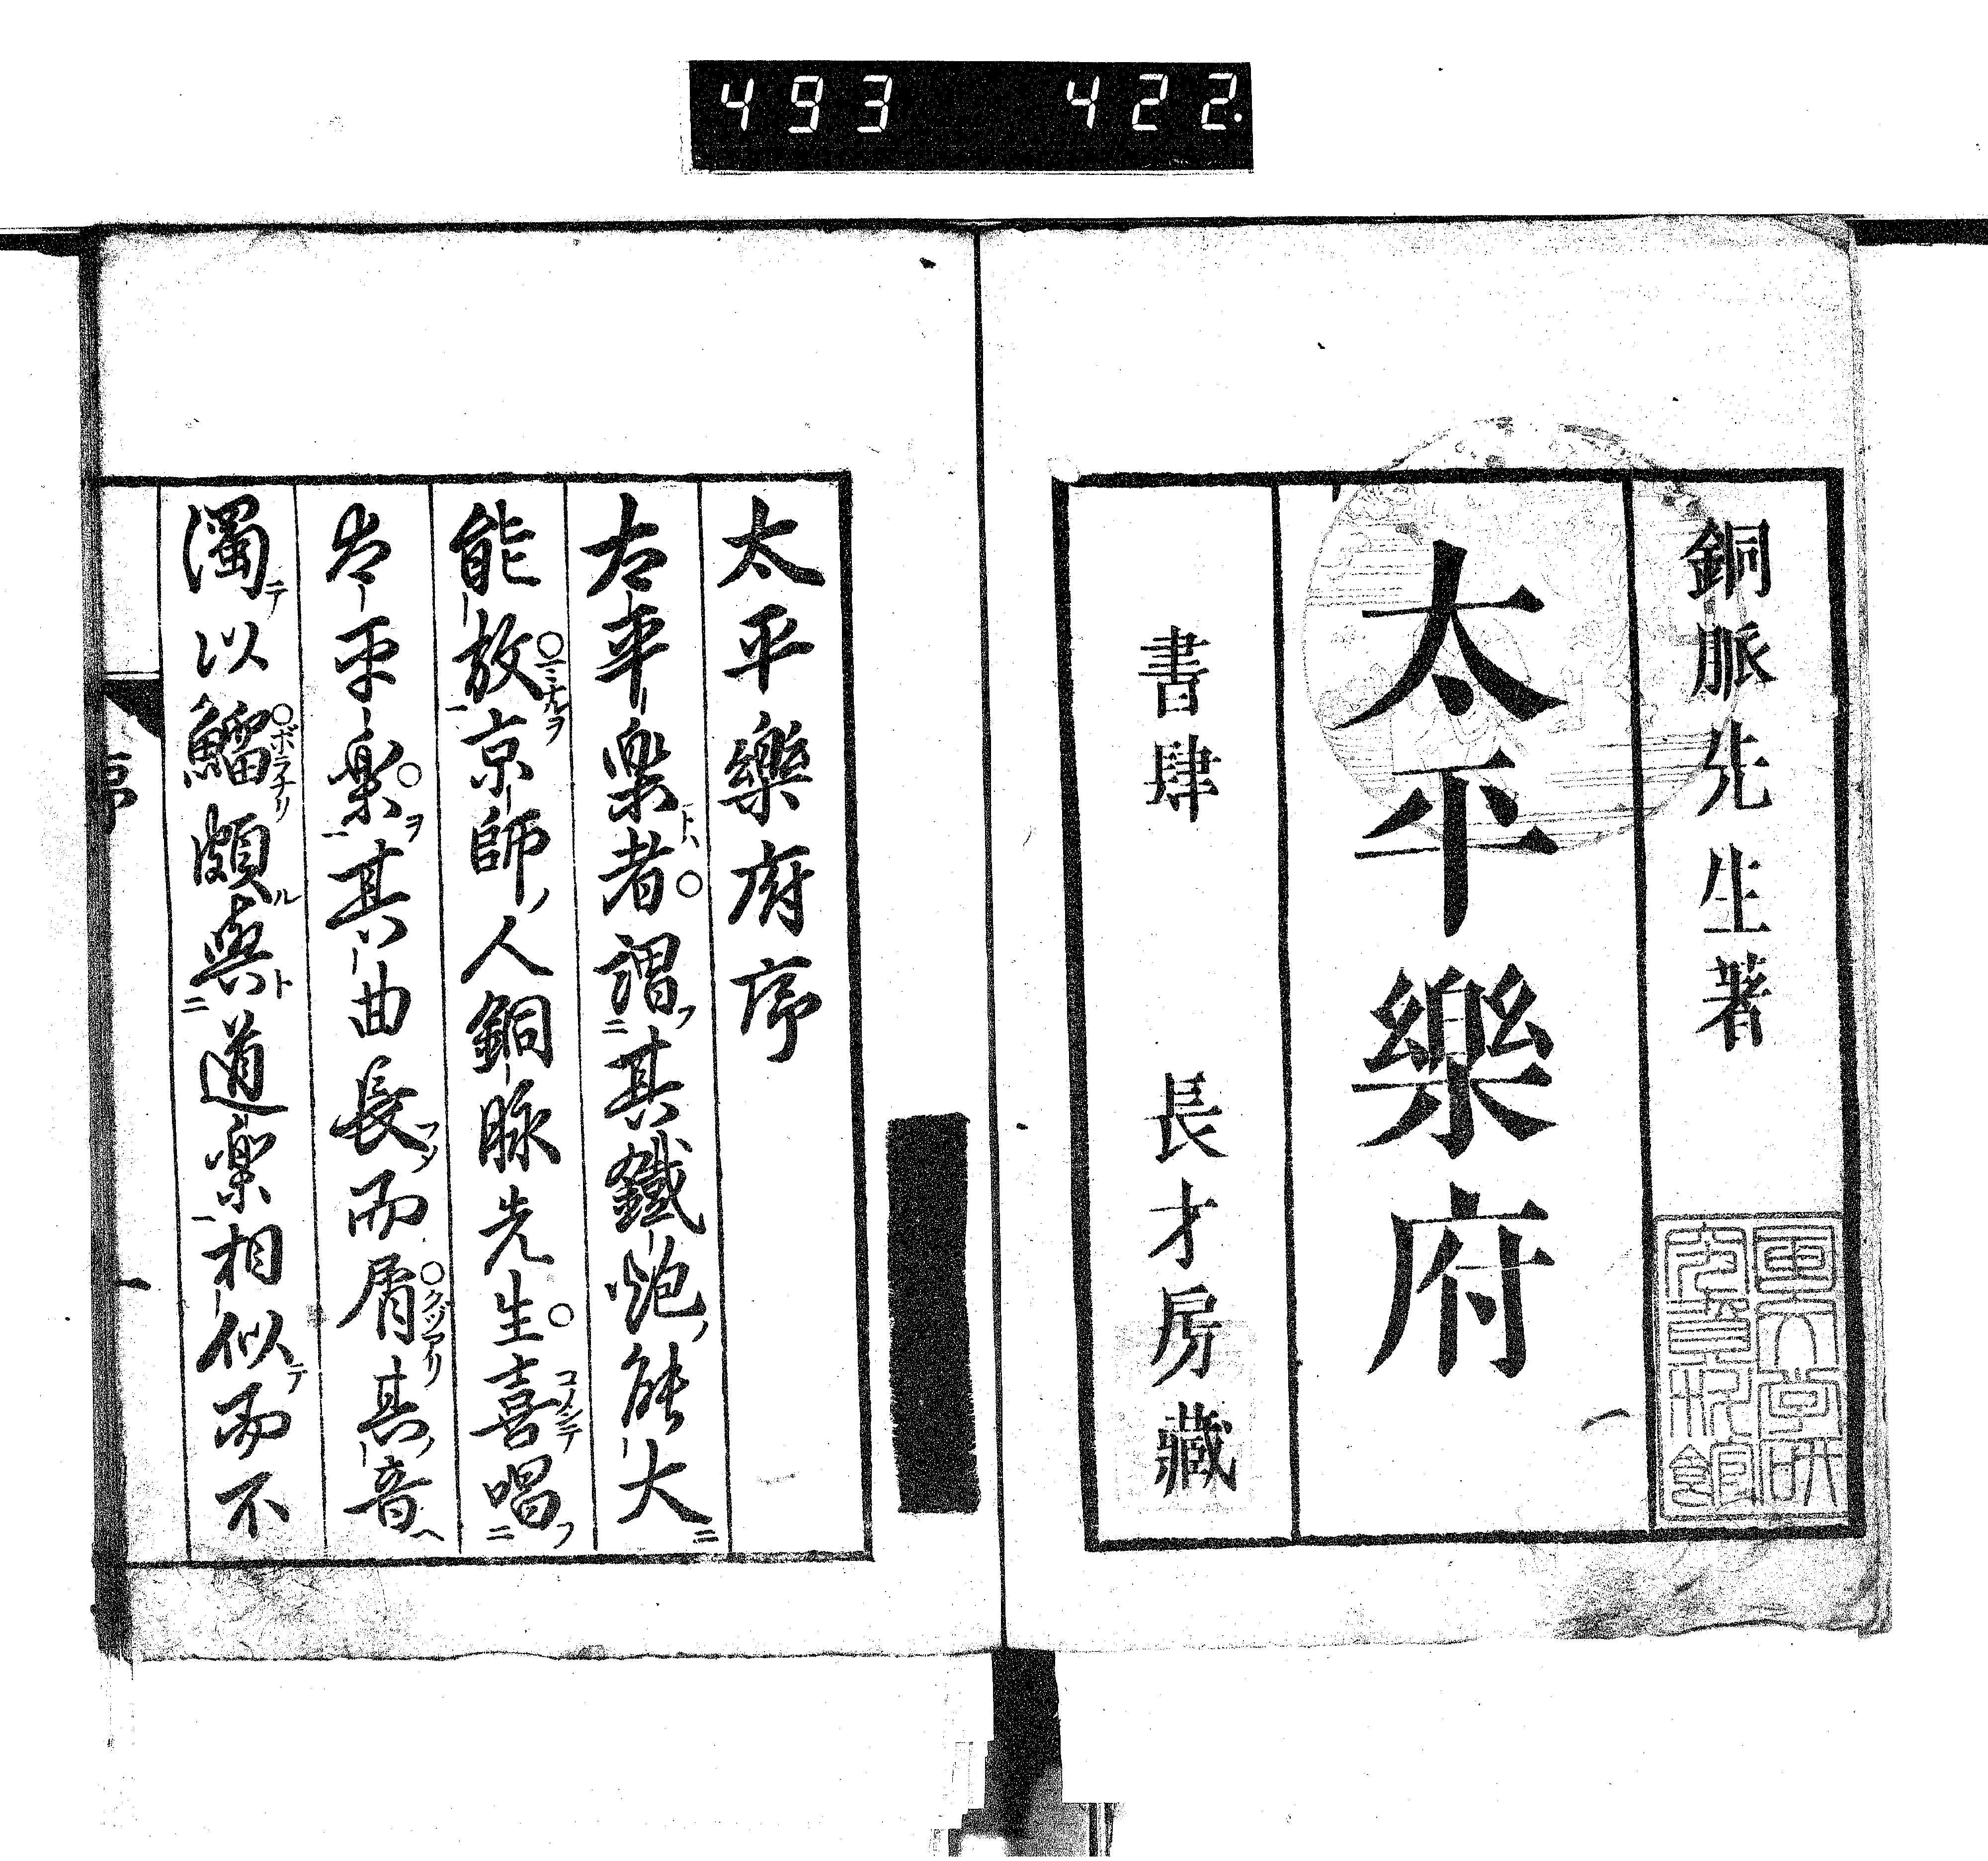 493 422.
銅脈先生著
太平樂府
書肆 長才房藏
太平樂府序
太平樂者謂其鐵炮能大
能放京師人銅脉先生喜唱
太平樂其曲長而屑其音
濁以鰡頗與道樂相似而不
序
一